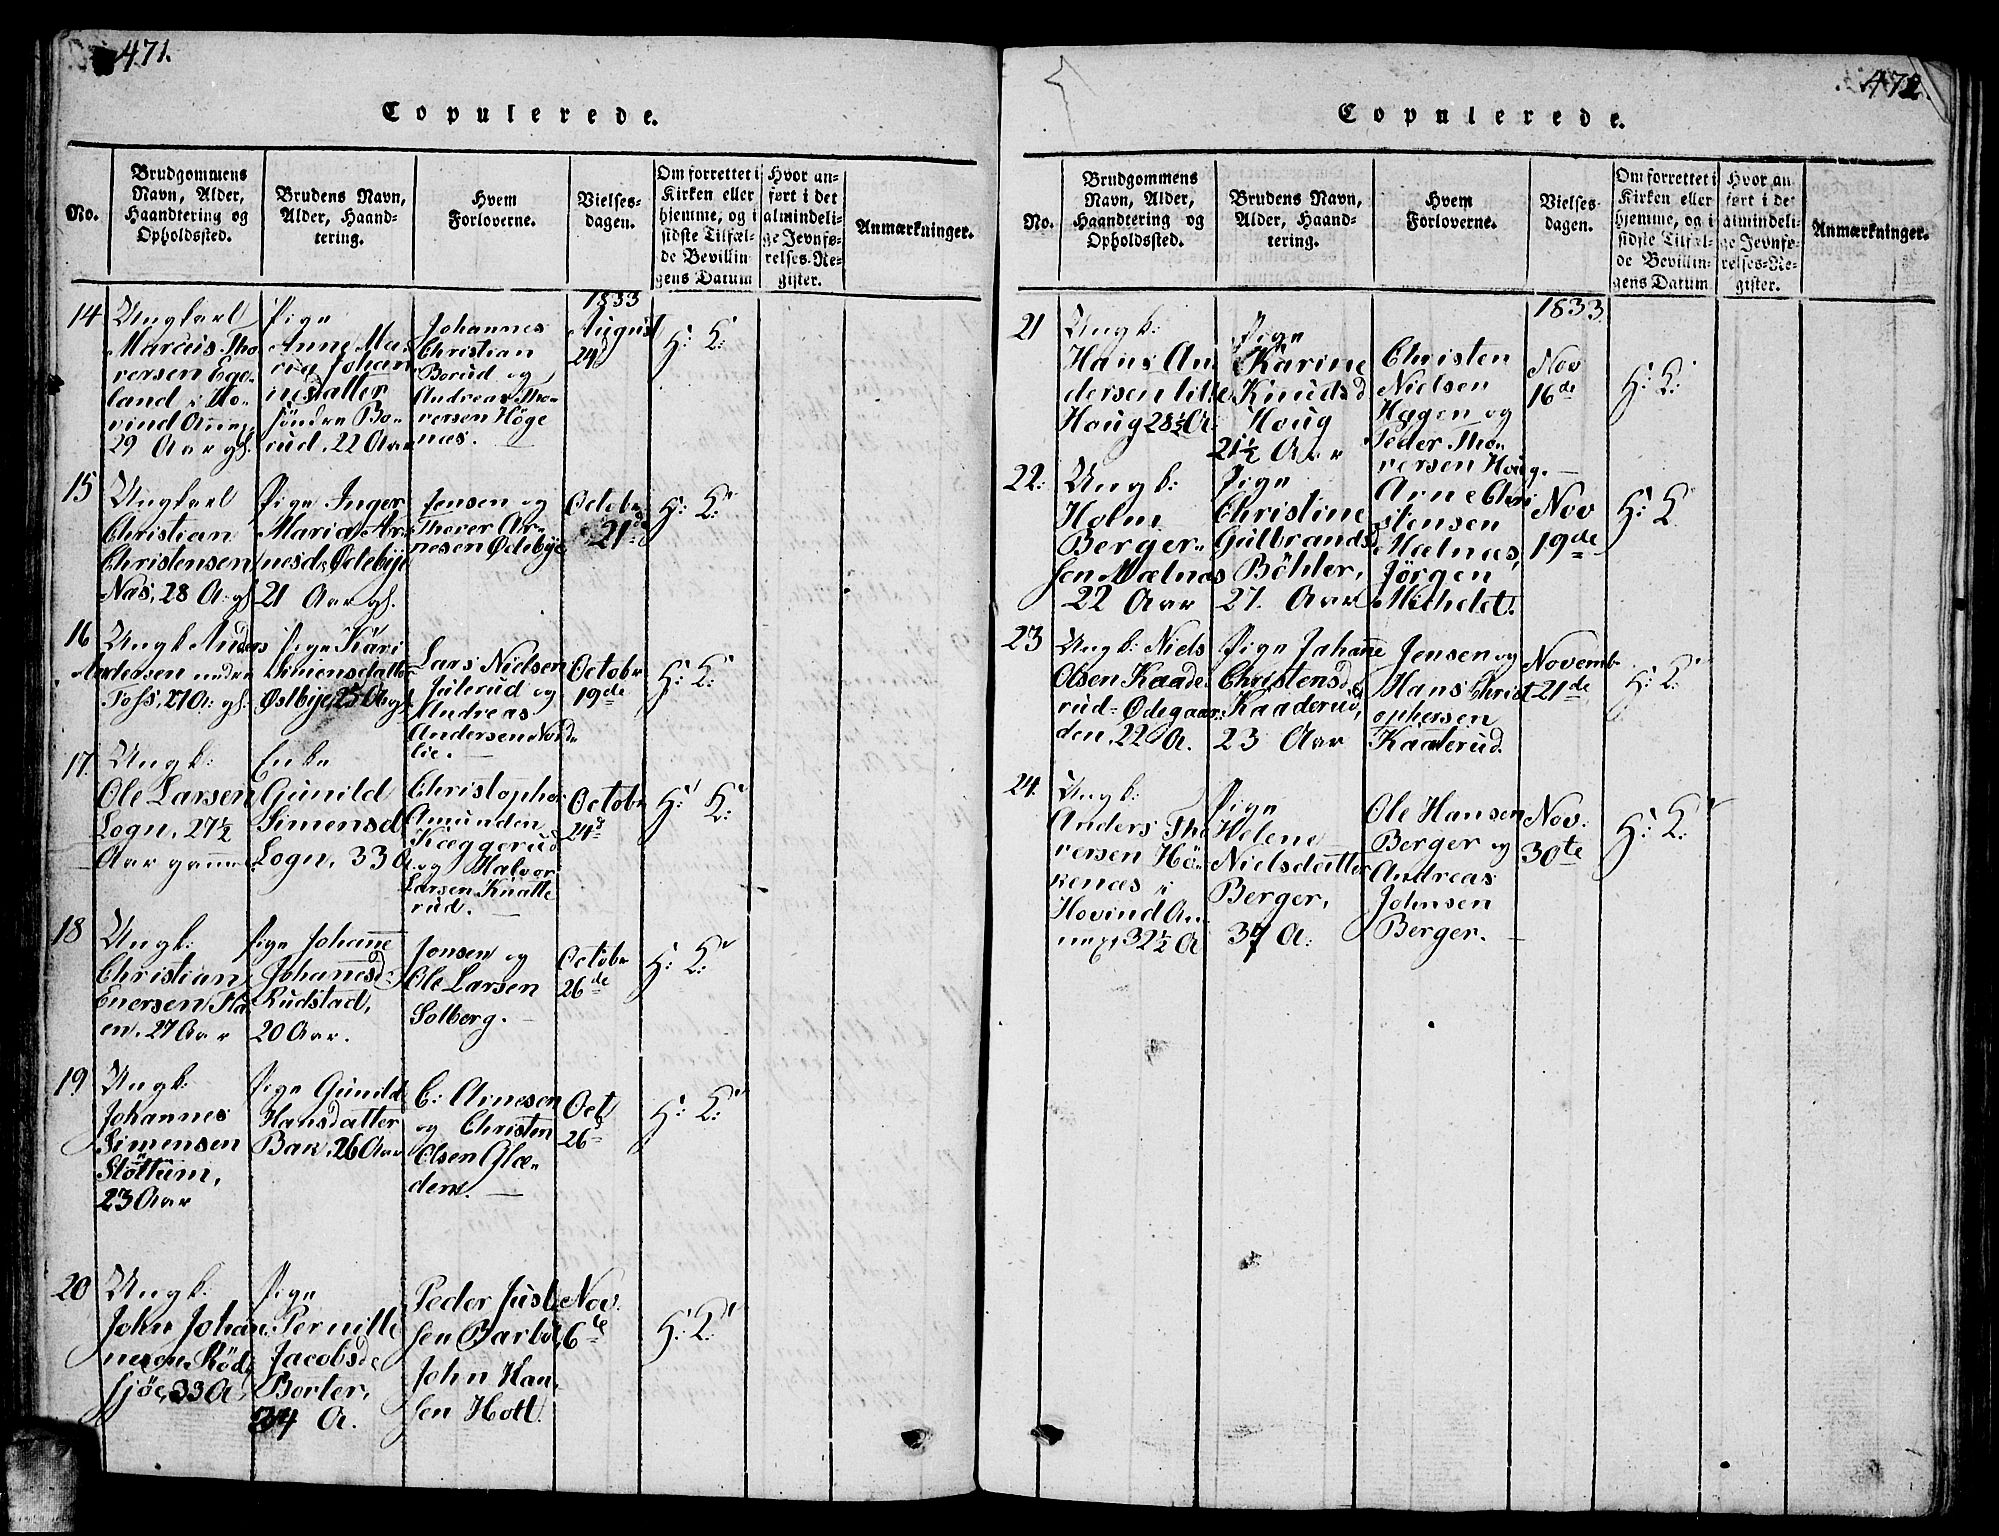 471.
Copulerede.
No.
Brudgommens
Navn, Alder,
Haandtering og
Opholdssted.
Brudens Navn,
Alder, Haand-
tering.
Hvem
Forloverne.
Vielses-
dagen.
Om forrettet i
Kirken eller
hjemme, og i
sidste Tilfæl-
de Bevillin-
gens Datum
Hvor an-
ført i det
almindeli-
ge Jevnfø-
relses-Re-
gister.
Anmærkninger.
1833
14
Ungkarl
Marcus Tho
rersen Ege-
land i Ho-
vind Annex
29 Aar gl.
Pige
Anne Ma-
ria Johan
nesdatter
söndre Bo-
rud, 22 Aar
Johannes
Christian
Borud og
Andreas Tho-
rersen Höge
næs.
August
24
H: K:
15
Ungkarl
Christian
Christensen
Næs, 28 A: gl.
Pige Inger
Maria Ar-
nesd. Ødebye
21 Aar gl.
Jensen og
Therer Ar-
nesen Ødebye
Octobr
21d
H: K:
16
Ungk. Anders
Andersen nedre
Foss, 27 A: gl.
Pige Kari
Simensdatter
Østbye 25 A gl.
Lars Nielsen
Julerud og
Andreas
Andersen Nord-
lie.
Octobr
19de
H: K:
17.
Ungk:
Ole Larsen
Logn, 27½
Aar gamel
Enke
Gunild
Simensd
Logn, 33 A
Christopher
Amunden
Kæggerud
og Halvor
Larsen Knatte
rud.
Octobr
24d
H: K:
18
Ungk:
Christian
Enersen Ha-
en, 27 Aar
Pige Johanne
Johannesd
Rudstad,
20 Aar.
Jonsen og
Ole Larsen
Solberg.
Octobr
26de
H: K:
19
Ungk:
Johannes
Simensen
Stöttum,
23 Aar
Pige Gunild
Hansdatter
Bak, 26 Aar
C: Arnesen
og Christen
Olsen Glæ-
dens.
Oct
26d
H: K:
20
Ungk:
John Johan
nesen Röd-
sjöe, 33 A
Pige
Pernille
Jacobsd
Borter,
34 A.
Peder Just-
sen Barbøl,
John Han-
sen Holt.
Nov.
6de
H: K:
472.
Copulerede.
No.
Brudgommens
Navn, Alder,
Haandtering og
Opholdssted.
Brudens Navn,
Alder, Haand-
tering.
Hvem
Forloverne.
Vielses-
dagen.
Om forrettet i
Kirken eller
hjemme, og i
sidste Tilfæl-
de Bevillin-
gens Datum
Hvor an-
ført i det
almindeli-
ge Jevnfø-
relses-Re-
gister.
Anmærkninger.
1833.
21
Ungk:
Hans An
dersen lille
Houg 28½ A.
Pige
Karine
Knudsd
Houg
21½ Aar
Christen
Nielsen
Hagen og
Peder Tho-
rersen Houg.
Nov
16de
H: K:
22:
Ungk:
Holm
Berger-
sen Mælnæs
22 Aar
Pige
Christine
Gulbrandsd
Böhler,
27. Aar
Arne Chri
stensen
Mælnæs,
Jörgen
Michelet.
Nov
19de
H: K
23
Ungk: Niels
Olsen Kaade-
rud-Ødegaar-
den, 22 A.
Pige Johanne
Christensd
Kaaderud,
23 Aar
Jensen og
Hans Christ
ophersen
Kaaderud.
Novemb
21de
H: K:
24.
Ungk:
Anders Tho
rersen Hö-
kenæs i
Hovind An-
nex, 32½ A
Pige
Helene
Nielsdatter
Berger,
37 A:
Ole Hansen
Berger og
Andreas
Johnsen
Berger.
Nov:
30te
H: K: